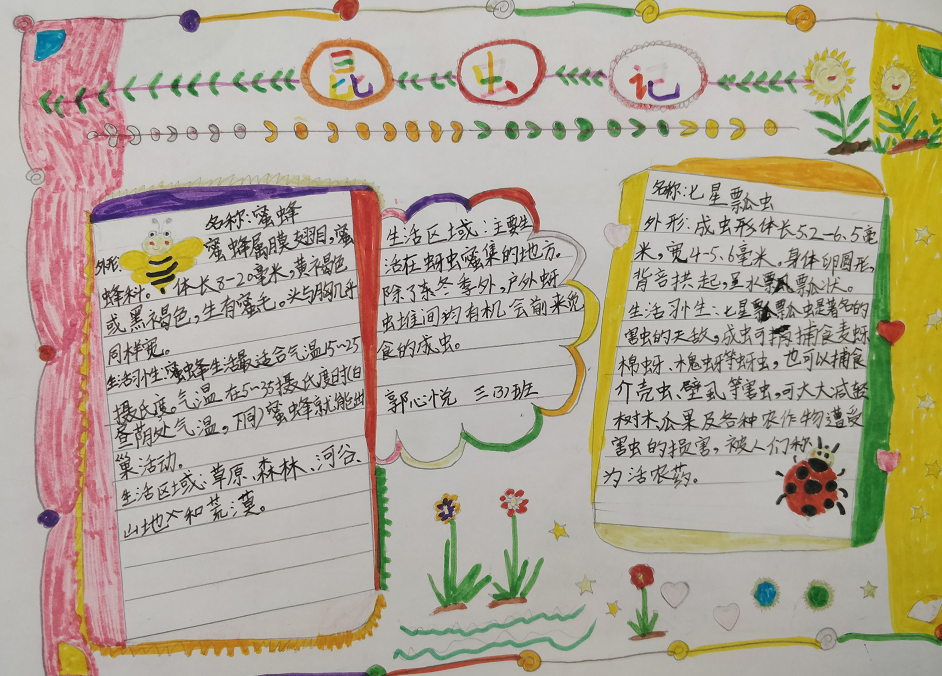 昆虫记
名称:蜜蜂
外形:蜜蜂属膜翅目,蜜
蜂科。体长8-20毫米,黄褐色
或黑褐色,生有蜜毛。头与胸几乎
同样宽。
生活习性:蜜蜂生活最适合气温15~25
摄氏度。气温在5~35摄氏度时(白
昼荫处气温,下同)蜜蜂就能出
巢活动。
生活区域:草原、森林、河谷、
山地和荒漠。
生活区域:主要生
活在蚜虫蜜集的地方。
除了东冬季外,户外蚜
虫堆间均有机会前来免
食的成虫。
郭心悦 三(3)班
名称:七星瓢虫
外形:成虫形体长5.2-6.5毫
米,宽4-5.6毫米。身体卵圆形,
背音拱起,呈水瓢瓢状。
生活习生、七星瓢虫是著名的
害虫的天敌,成虫可捕食麦蚜
棉蚜、槐虫蚜等蚜虫,也可以捕食
介壳虫、壁虱等害虫,可大大减轻
树木瓜果及各种农作物遭受
害虫的损害,被人们称
为活农药。